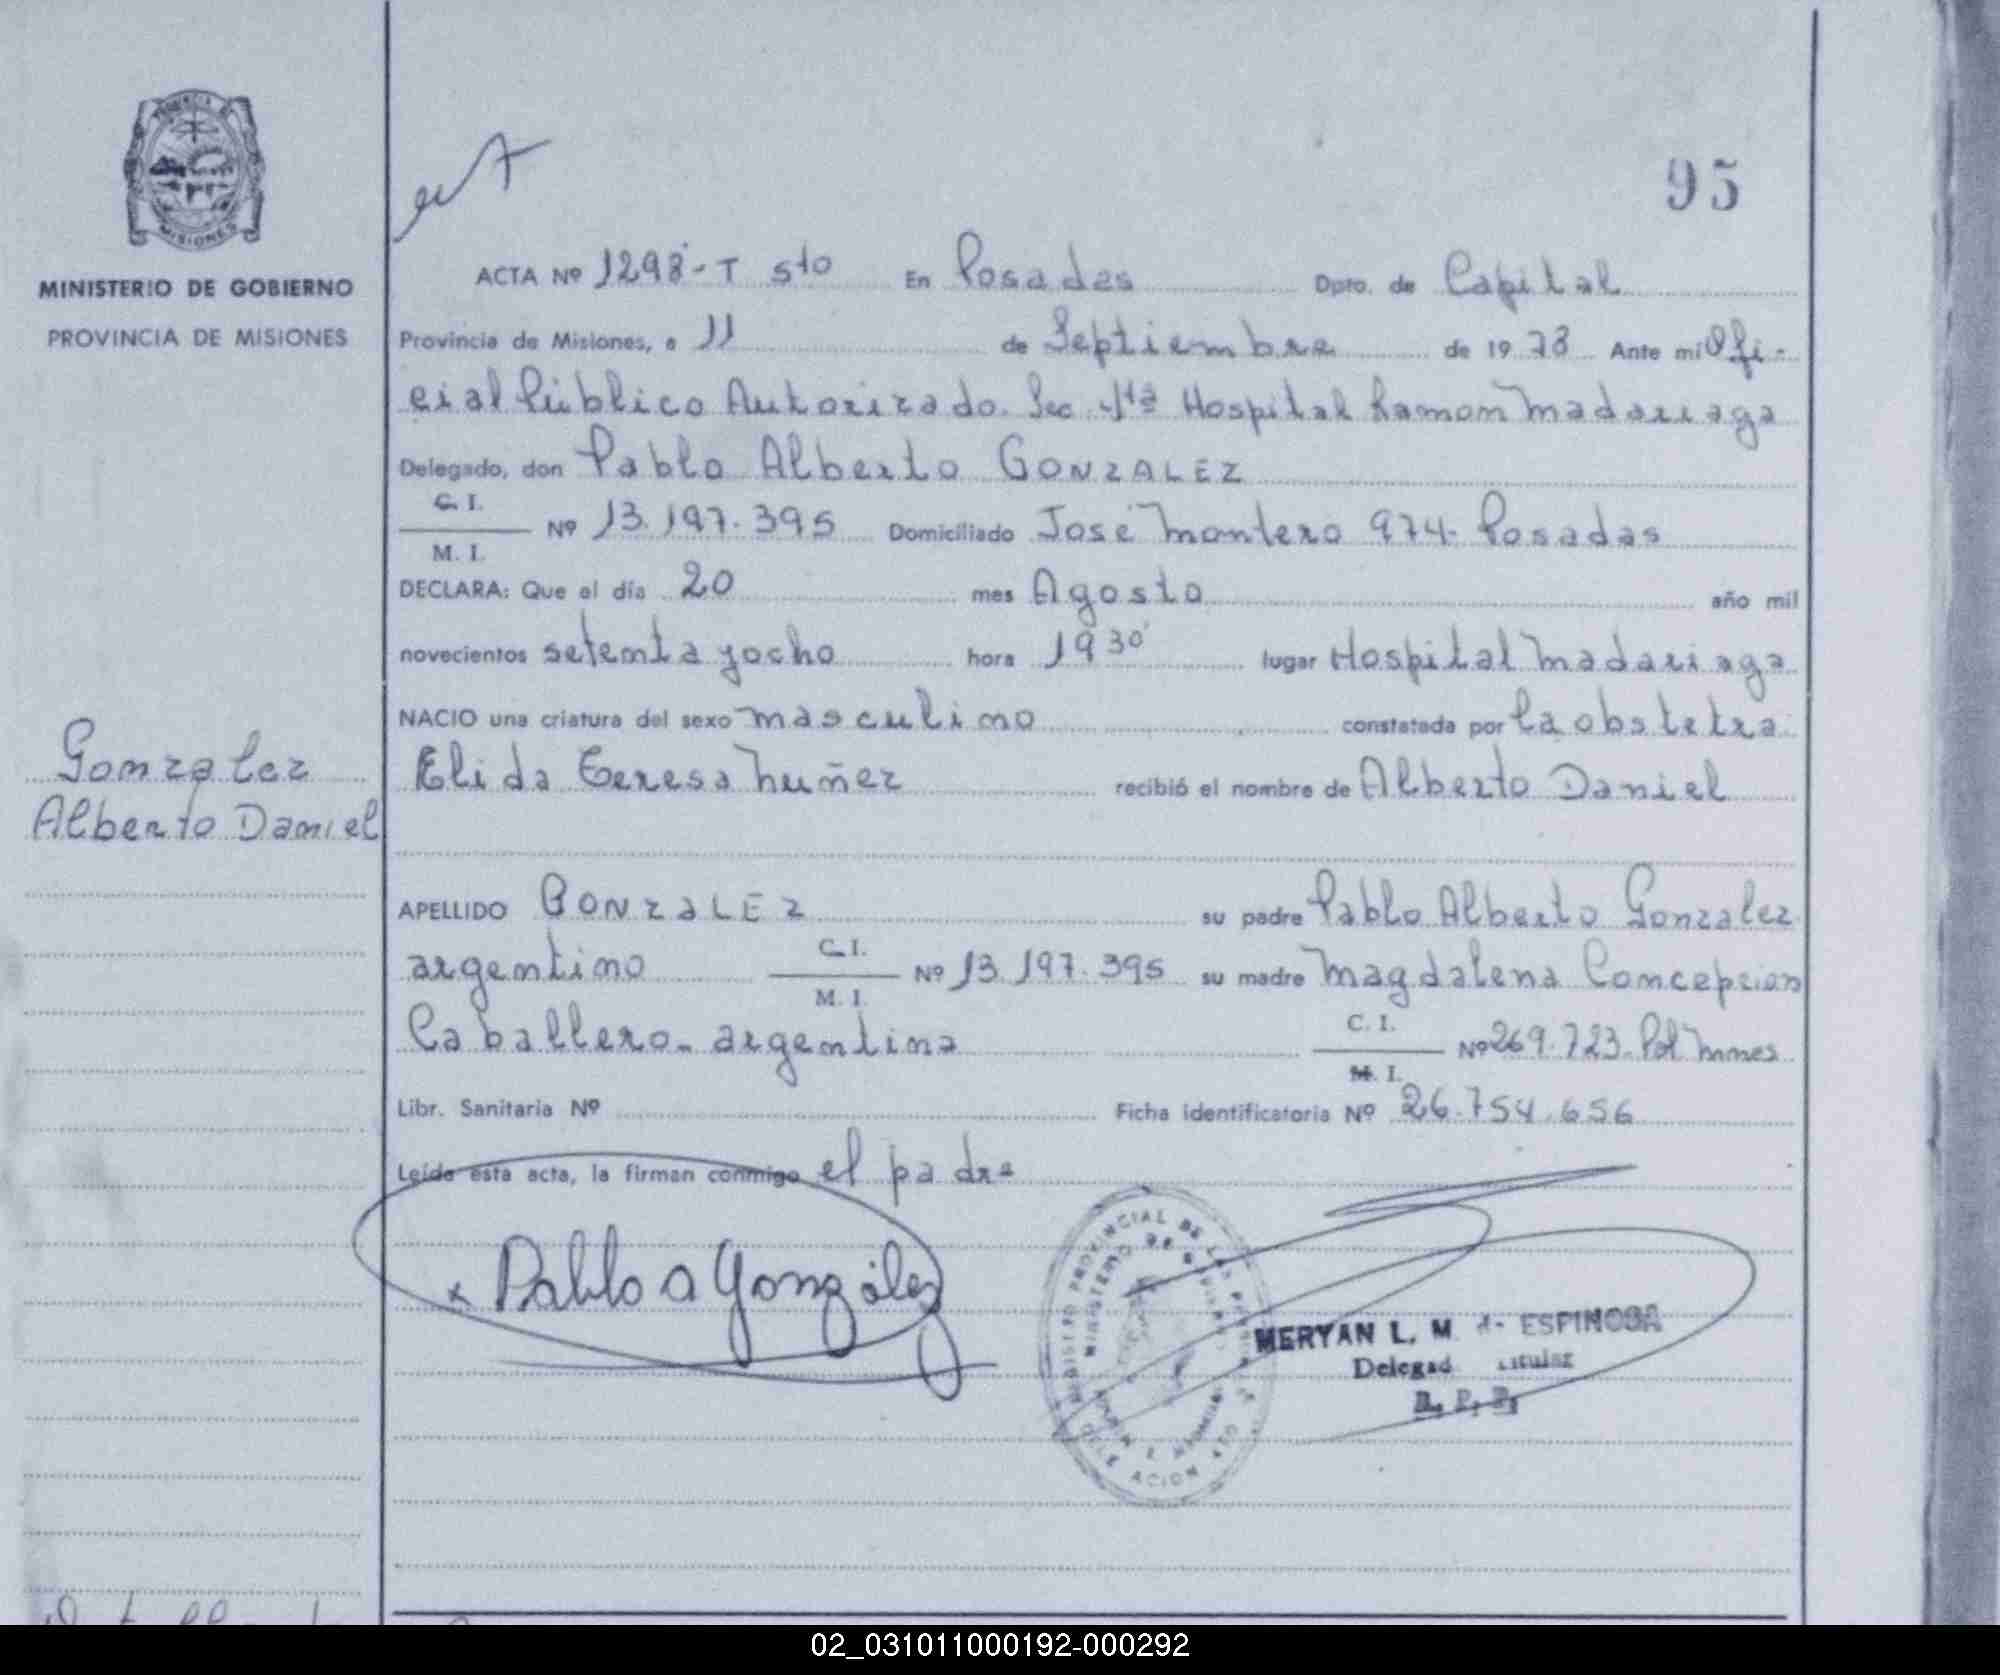 95
ACTA Nº 1298-T 5to En Posadas Dpto. de Capital
MINISTERIO DE GOBIERNO
PROVINCIA DE MISIONES
Provincia de Misiones, a 11 de Septiembre de 19 78 Ante mi Ofi-
cial Público Autorizado. Sec. 4ta Hospital Ramon Madariaga
Delegado, don Pablo Alberto GONZALEZ
C. I.
M. I.
Nº 13.197.395 Domiciliado José Montero 974- Posadas
DECLARA: Que el día 20 mes Agosto año mil
novecientos setenta y ocho hora 19 30' lugar Hospital Madariaga
NACIO una criatura del sexo masculino constatada por la obstetra
Elida Teresa Nuñez recibió el nombre de Alberto Daniel
Gonzalez
Alberto Daniel
APELLIDO GONZALEZ su padre Pablo Alberto Gonzalez
argentino C. I. M. I. Nº 13.197.395 su madre Magdalena Concepcion
Caballero- argentina C. I. M. I. Nº 269.723. Pol Mnes
Libr. Sanitaria Nº Ficha identificatoria Nº 26.754.656
Leída esta acta, la firman conmigo el padre
x Pablo A González
REGISTRO PROVINCIAL DE LAS PERSONAS
MINISTERIO DE GOBIERNO
MERYAN L. M. de ESPINOSA
Delegad Titular
R. P. P.
02_031011000192-000292